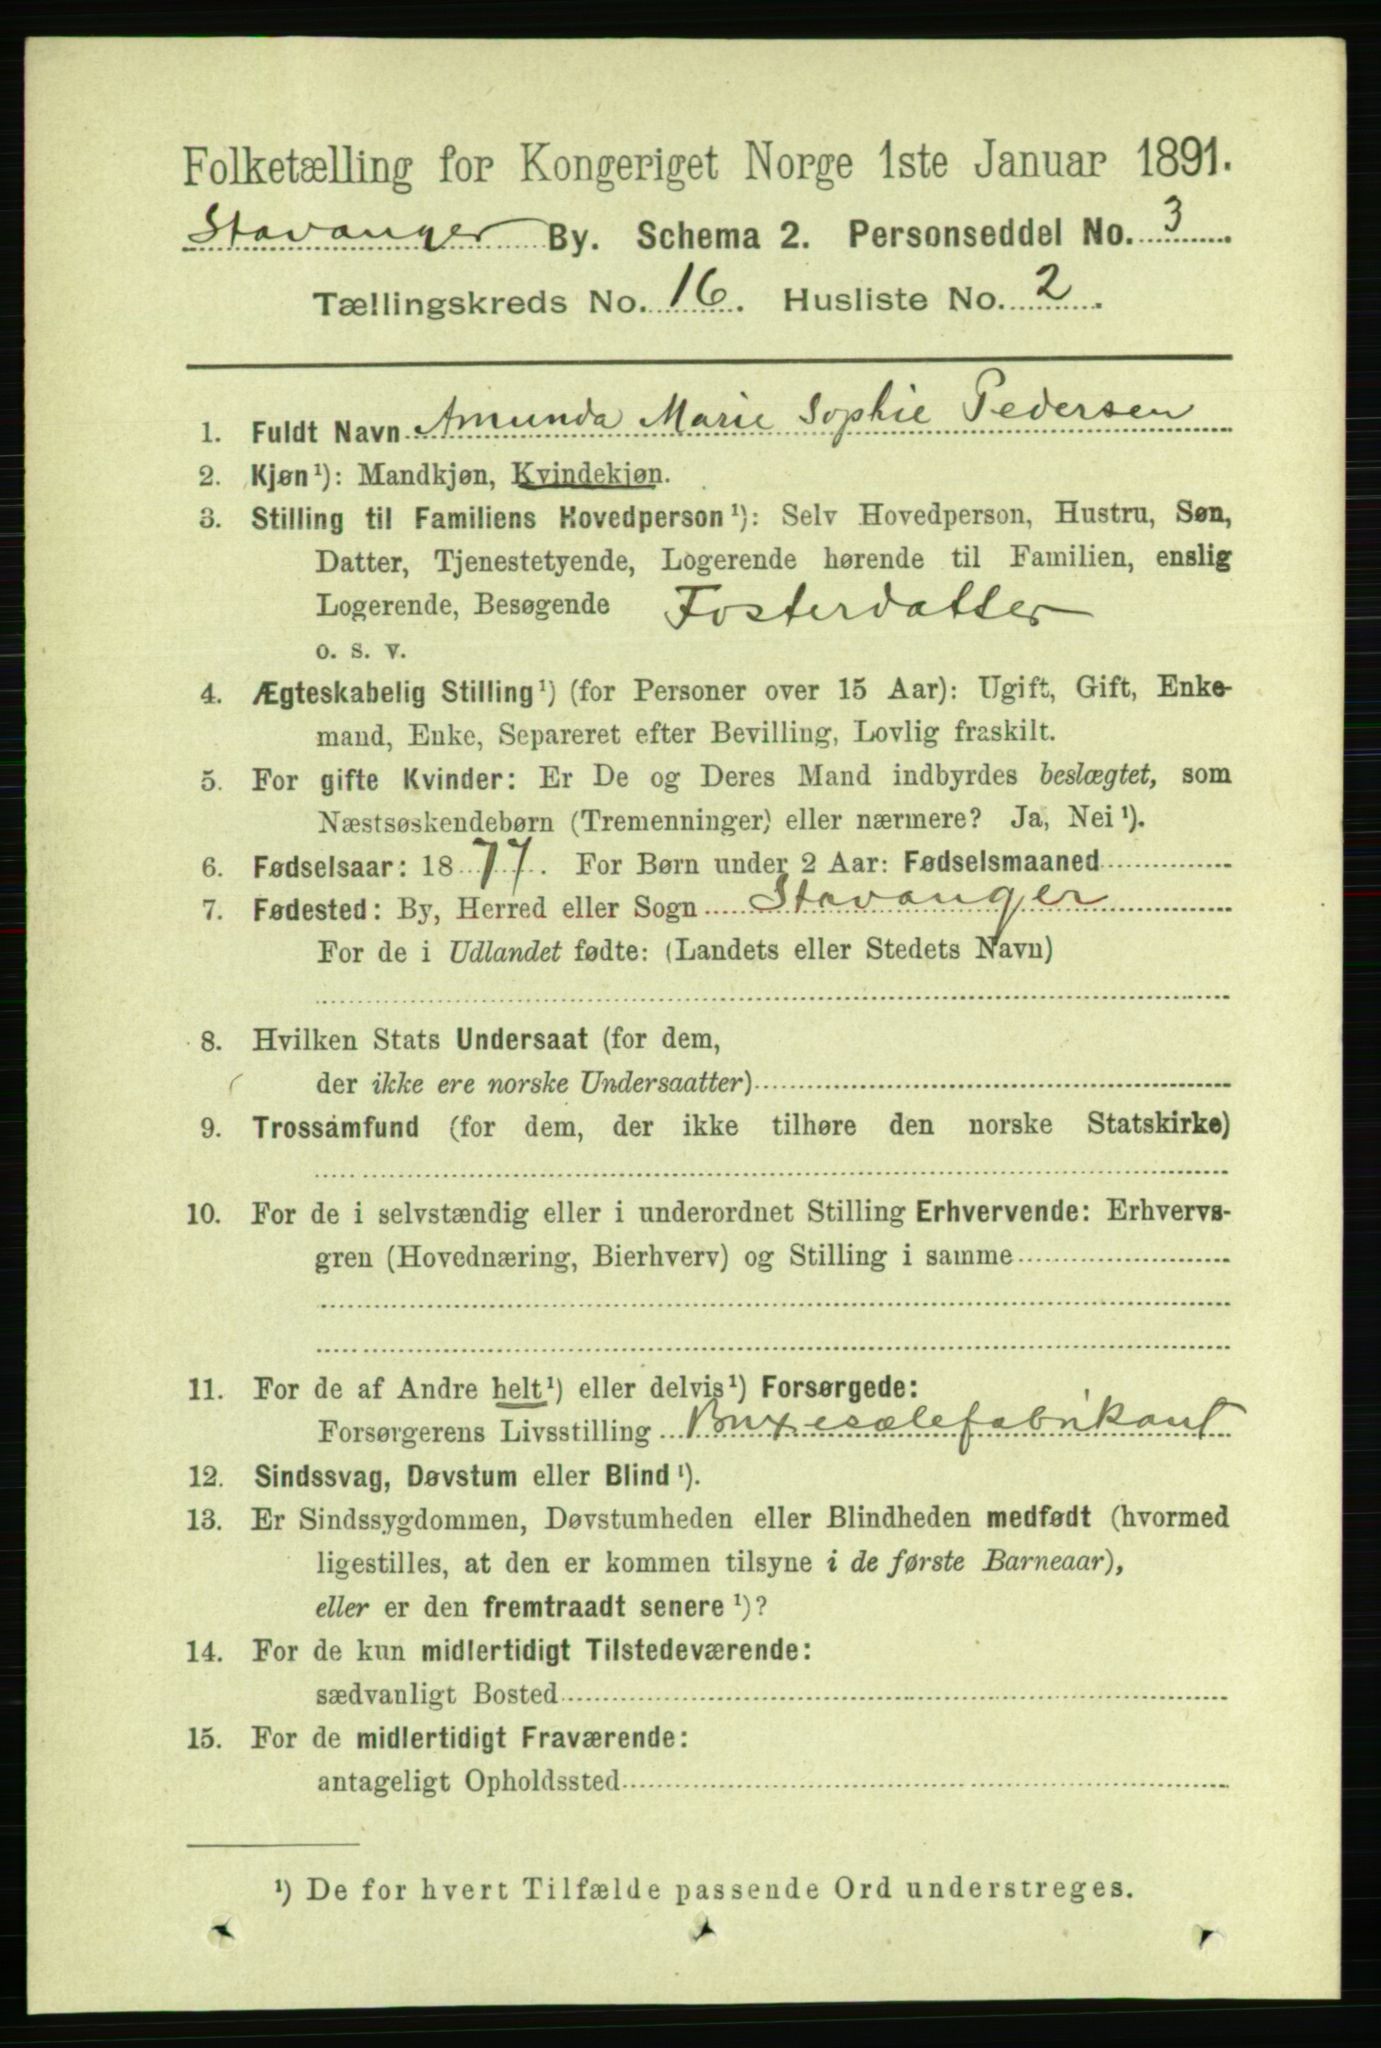 Folketælling for Kongeriget Norge 1ste Januar 1891.
Stavanger By. Schema 2. Personseddel No. 3
Tællingskreds No. 16. Husliste No. 2.
1. Fuldt Navn Amunda Marie Sophie Pedersen
2. Kjøn¹): Mandkjøn, Kvindekjøn.
3. Stilling til Familiens Hovedperson¹): Selv Hovedperson, Hustru, Søn,
Datter, Tjenestetyende, Logerende hørende til Familien, enslig
Logerende, Besøgende Fosterdatter
o. s. v.
4. Ægteskabelig Stilling¹) (for Personer over 15 Aar): Ugift, Gift, Enke-
mand, Enke, Separeret efter Bevilling, Lovlig fraskilt.
5. For gifte Kvinder: Er De og Deres Mand indbyrdes beslægtet, som
Næstsøskendebørn (Tremenninger) eller nærmere? Ja, Nei¹).
6. Fødselsaar: 1877. For Børn under 2 Aar: Fødselsmaaned
7. Fødested: By, Herred eller Sogn Stavanger
For de i Udlandet fødte: (Landets eller Stedets Navn)
8. Hvilken Stats Undersaat (for dem,
der ikke ere norske Undersaatter)
9. Trossamfund (for dem, der ikke tilhøre den norske Statskirke)
10. For de i selvstændig eller i underordnet Stilling Erhvervende: Erhvervs-
gren (Hovednæring, Bierhverv) og Stilling i samme
11. For de af Andre helt¹) eller delvis¹) Forsørgede:
Forsørgerens Livsstilling Buxesælefabrikant
12. Sindssvag, Døvstum eller Blind¹).
13. Er Sindssygdommen, Døvstumheden eller Blindheden medfødt (hvormed
ligestilles, at den er kommen tilsyne i de første Barneaar),
eller er den fremtraadt senere¹)?
14. For de kun midlertidigt Tilstedeværende:
sædvanligt Bosted
15. For de midlertidigt Fraværende:
antageligt Opholdssted
¹) De for hvert Tilfælde passende Ord understreges.